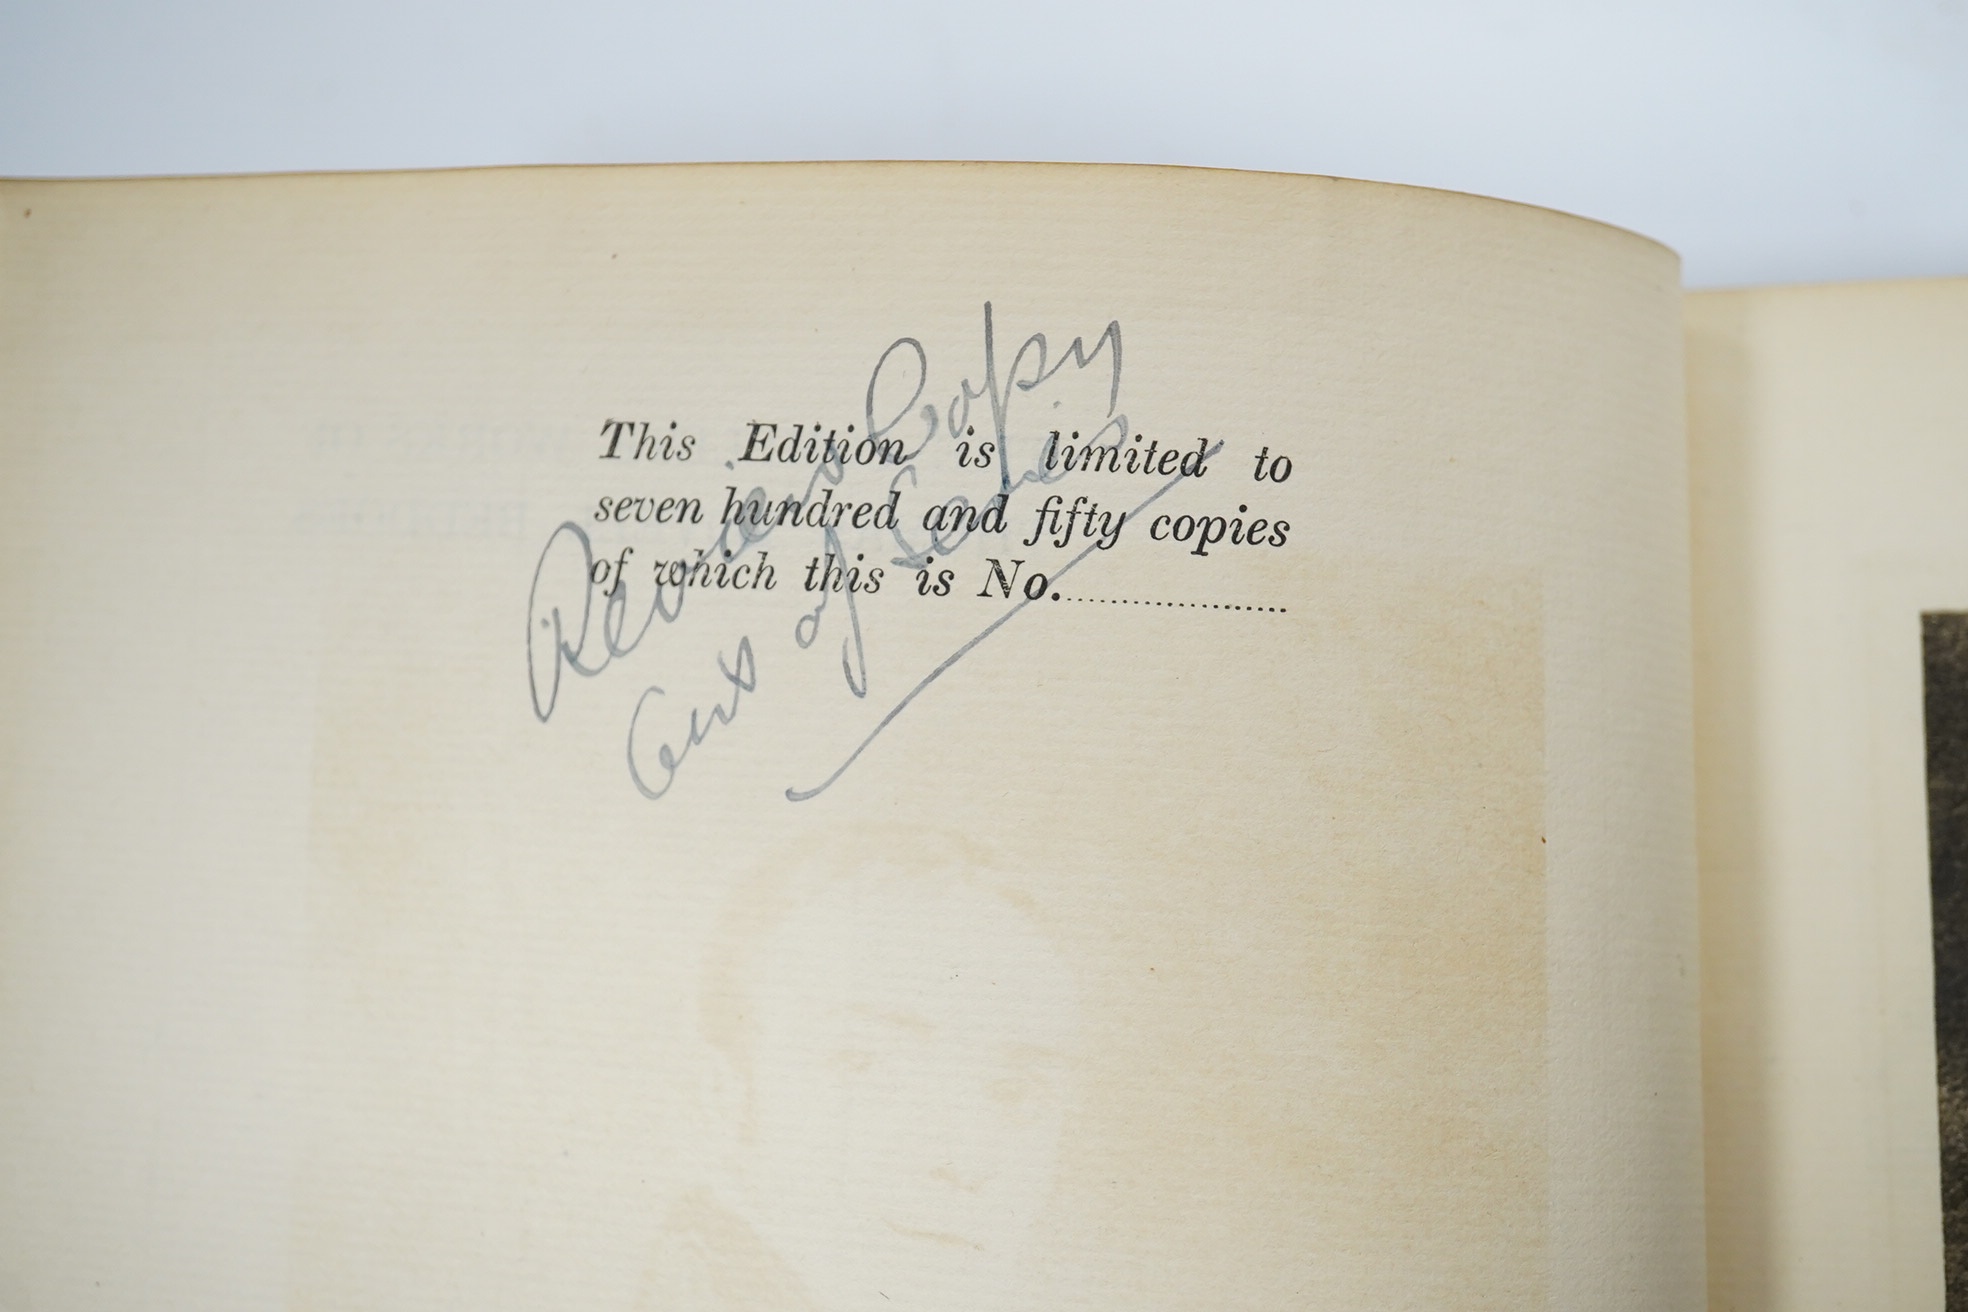 This Edition is limited to
seven hundred and fifty copies
of which this is No...................
Review Copy
out of Series